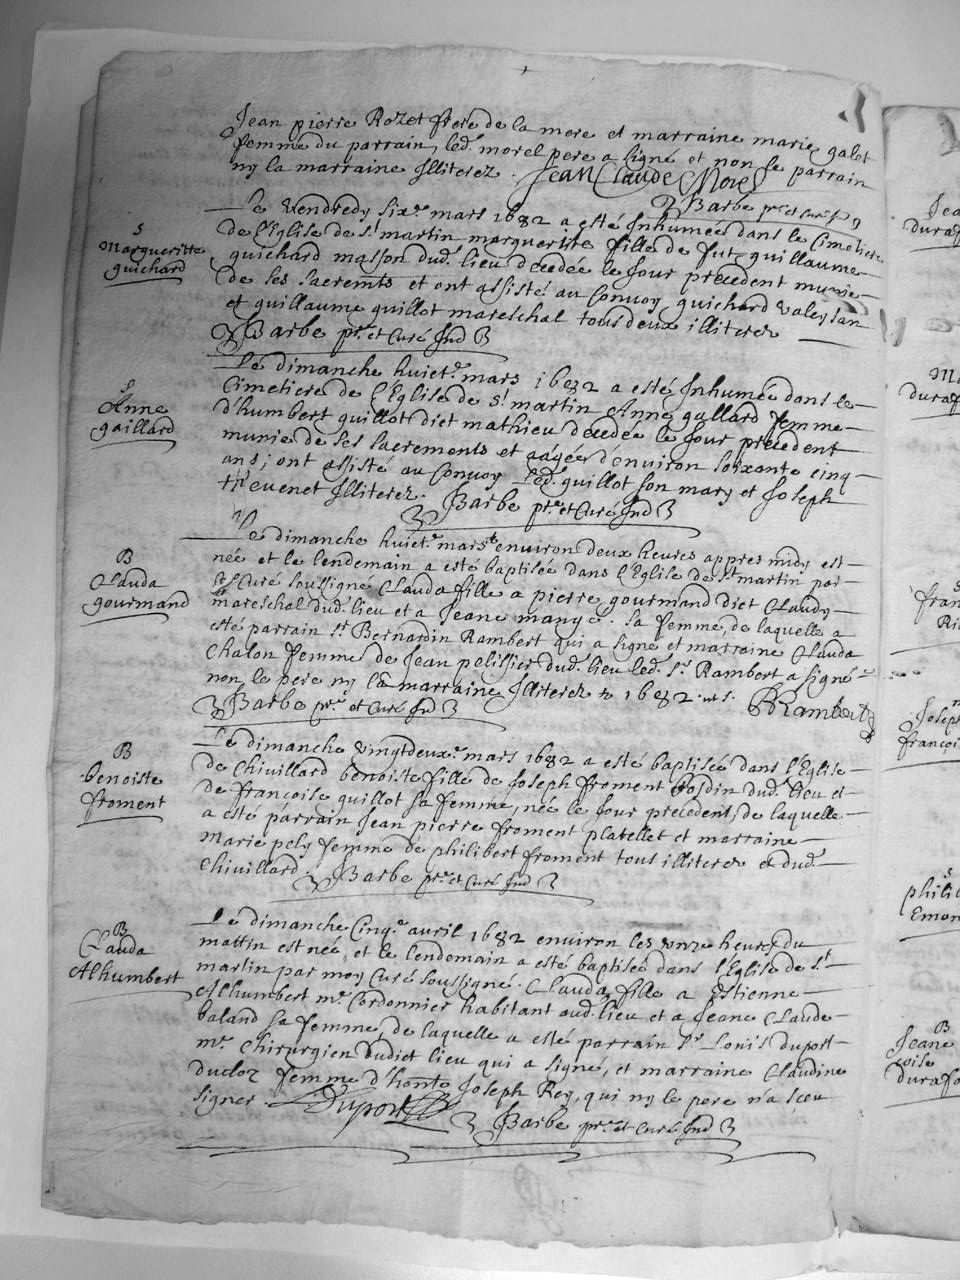 Jean pierre Rozet frere de la mere et marraine marie galot
femme du parrain, led. morel pere a signé et non le parrain
ny la marraine Illiterez. Jean Claude Morel
Barbe pr. et Curé
S
Margueritte
guichard
Le vendredy six.e mars 1682 a esté Inhumée dans le Cimetiere
de l'Eglise de st martin margueritte fille de fut guillaume
guichard masson dud. lieu decedée le Jour precedent munie
de ses sacremts et ont assisté au Convoy guichard valeysan
et guillaume guillot mareschal tous deux illiterez
Barbe pr. et Curé Ind
S
Anne
gaillard
Le dimanche huict.e mars 1682 a esté Inhumée dans le
Cimetiere de l'Eglise de st martin Anne gallard femme
d'humbert guillot dict mathieu decedée le Jour precedent
munie de ses sacrements et aagée d'environ soixante cinq
ans; ont assisté au Convoy led. guillot son mary et Joseph
thevenet Illiterez. Barbe pr. et Curé Ind
B
Clauda
gourmand
Le dimanche huict.e mars environ deux heures appres midy est
née et le lendemain a esté baptisée dans l'Eglise de st martin par
Curé soussigné Clauda fille a pierre gourmand dict Claudy
mareschal dud. lieu et a Jeane manye sa femme, de laquelle a
esté parrain sr Bernardin Rambert qui a signé et marraine Clauda
Chalon femme de Jean pelissier dud. lieu led. sr. Rambert a signé
non le pere ny la marraine Illiterez 1682 Rambert
Barbe pr. et Curé Ind
B
benoiste
froment
Le dimanche vingtdeux.e mars 1682 a esté baptisée dans l'Eglise
de Chivillard benoiste fille de Joseph froment dud. lieu et
de françoise guillot sa femme, née le Jour precedent, de laquelle
a esté parrain Jean pierre froment platellet et marraine
Marie pely femme de philibert froment tous illiterez et dud.
Chivillard. Barbe pr. et Curé Ind
B
Clauda
Alhumbert
Le dimanche Cinq.e avril 1682 environ les onze heures du
mattin est née, et le lendemain a esté baptisée dans l'Eglise de st.
martin par moy Curé soussigné Clauda, fille a Estienne
Alhumbert me. Cordonnier habitant aud. lieu et a Jeane Claude
baland sa femme, de laquelle a esté parrain sr. Louis duport
me. Chirurgien dudict lieu qui a signé, et marraine Claudine
ducloz femme d'honte Joseph Rey, qui ny le pere n'a sceu
signer Duport
Barbe pr. et Curé Ind